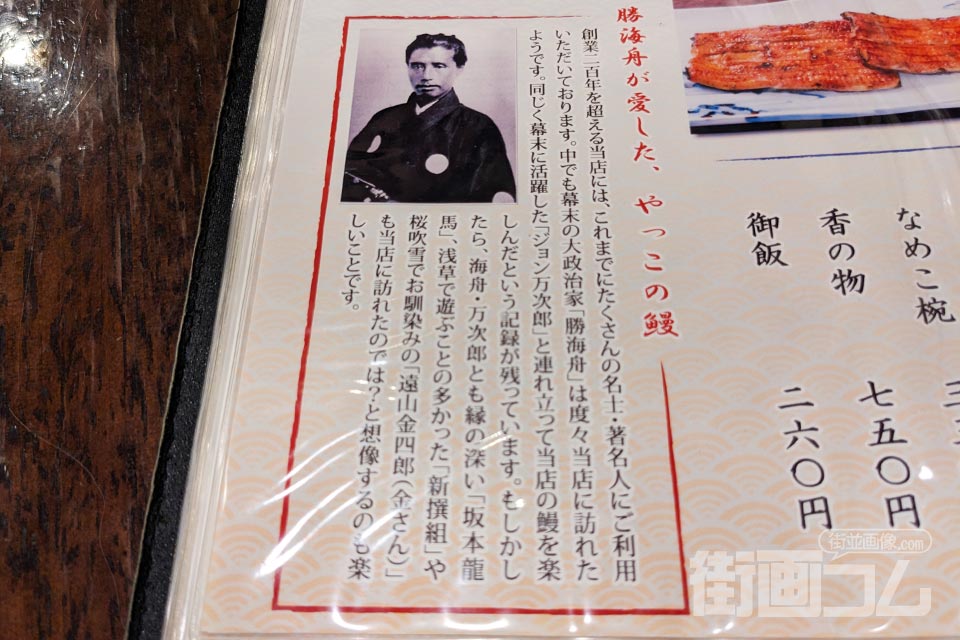 なめこ椀
香の物
七五〇円
御飯
二六〇円
勝海舟が愛した、やっこの鰻
創業二百年を超える当店には、これまでにたくさんの名士・著名人にご利用
いただいております。中でも幕末の大政治家「勝海舟」は度々当店に訪れた
ようです。同じく幕末に活躍した「ジョン万次郎」と連れ立って当店の鰻を楽
しんだという記録が残っています。もしかし
たら、海舟・万次郎とも縁の深い「坂本龍
馬」、浅草で遊ぶことの多かった「新撰組」や
桜吹雪でお馴染みの「遠山金四郎(金さん)」
も当店に訪れたのでは?と想像するのも楽
しいことです。
街並画像.com
街画コム